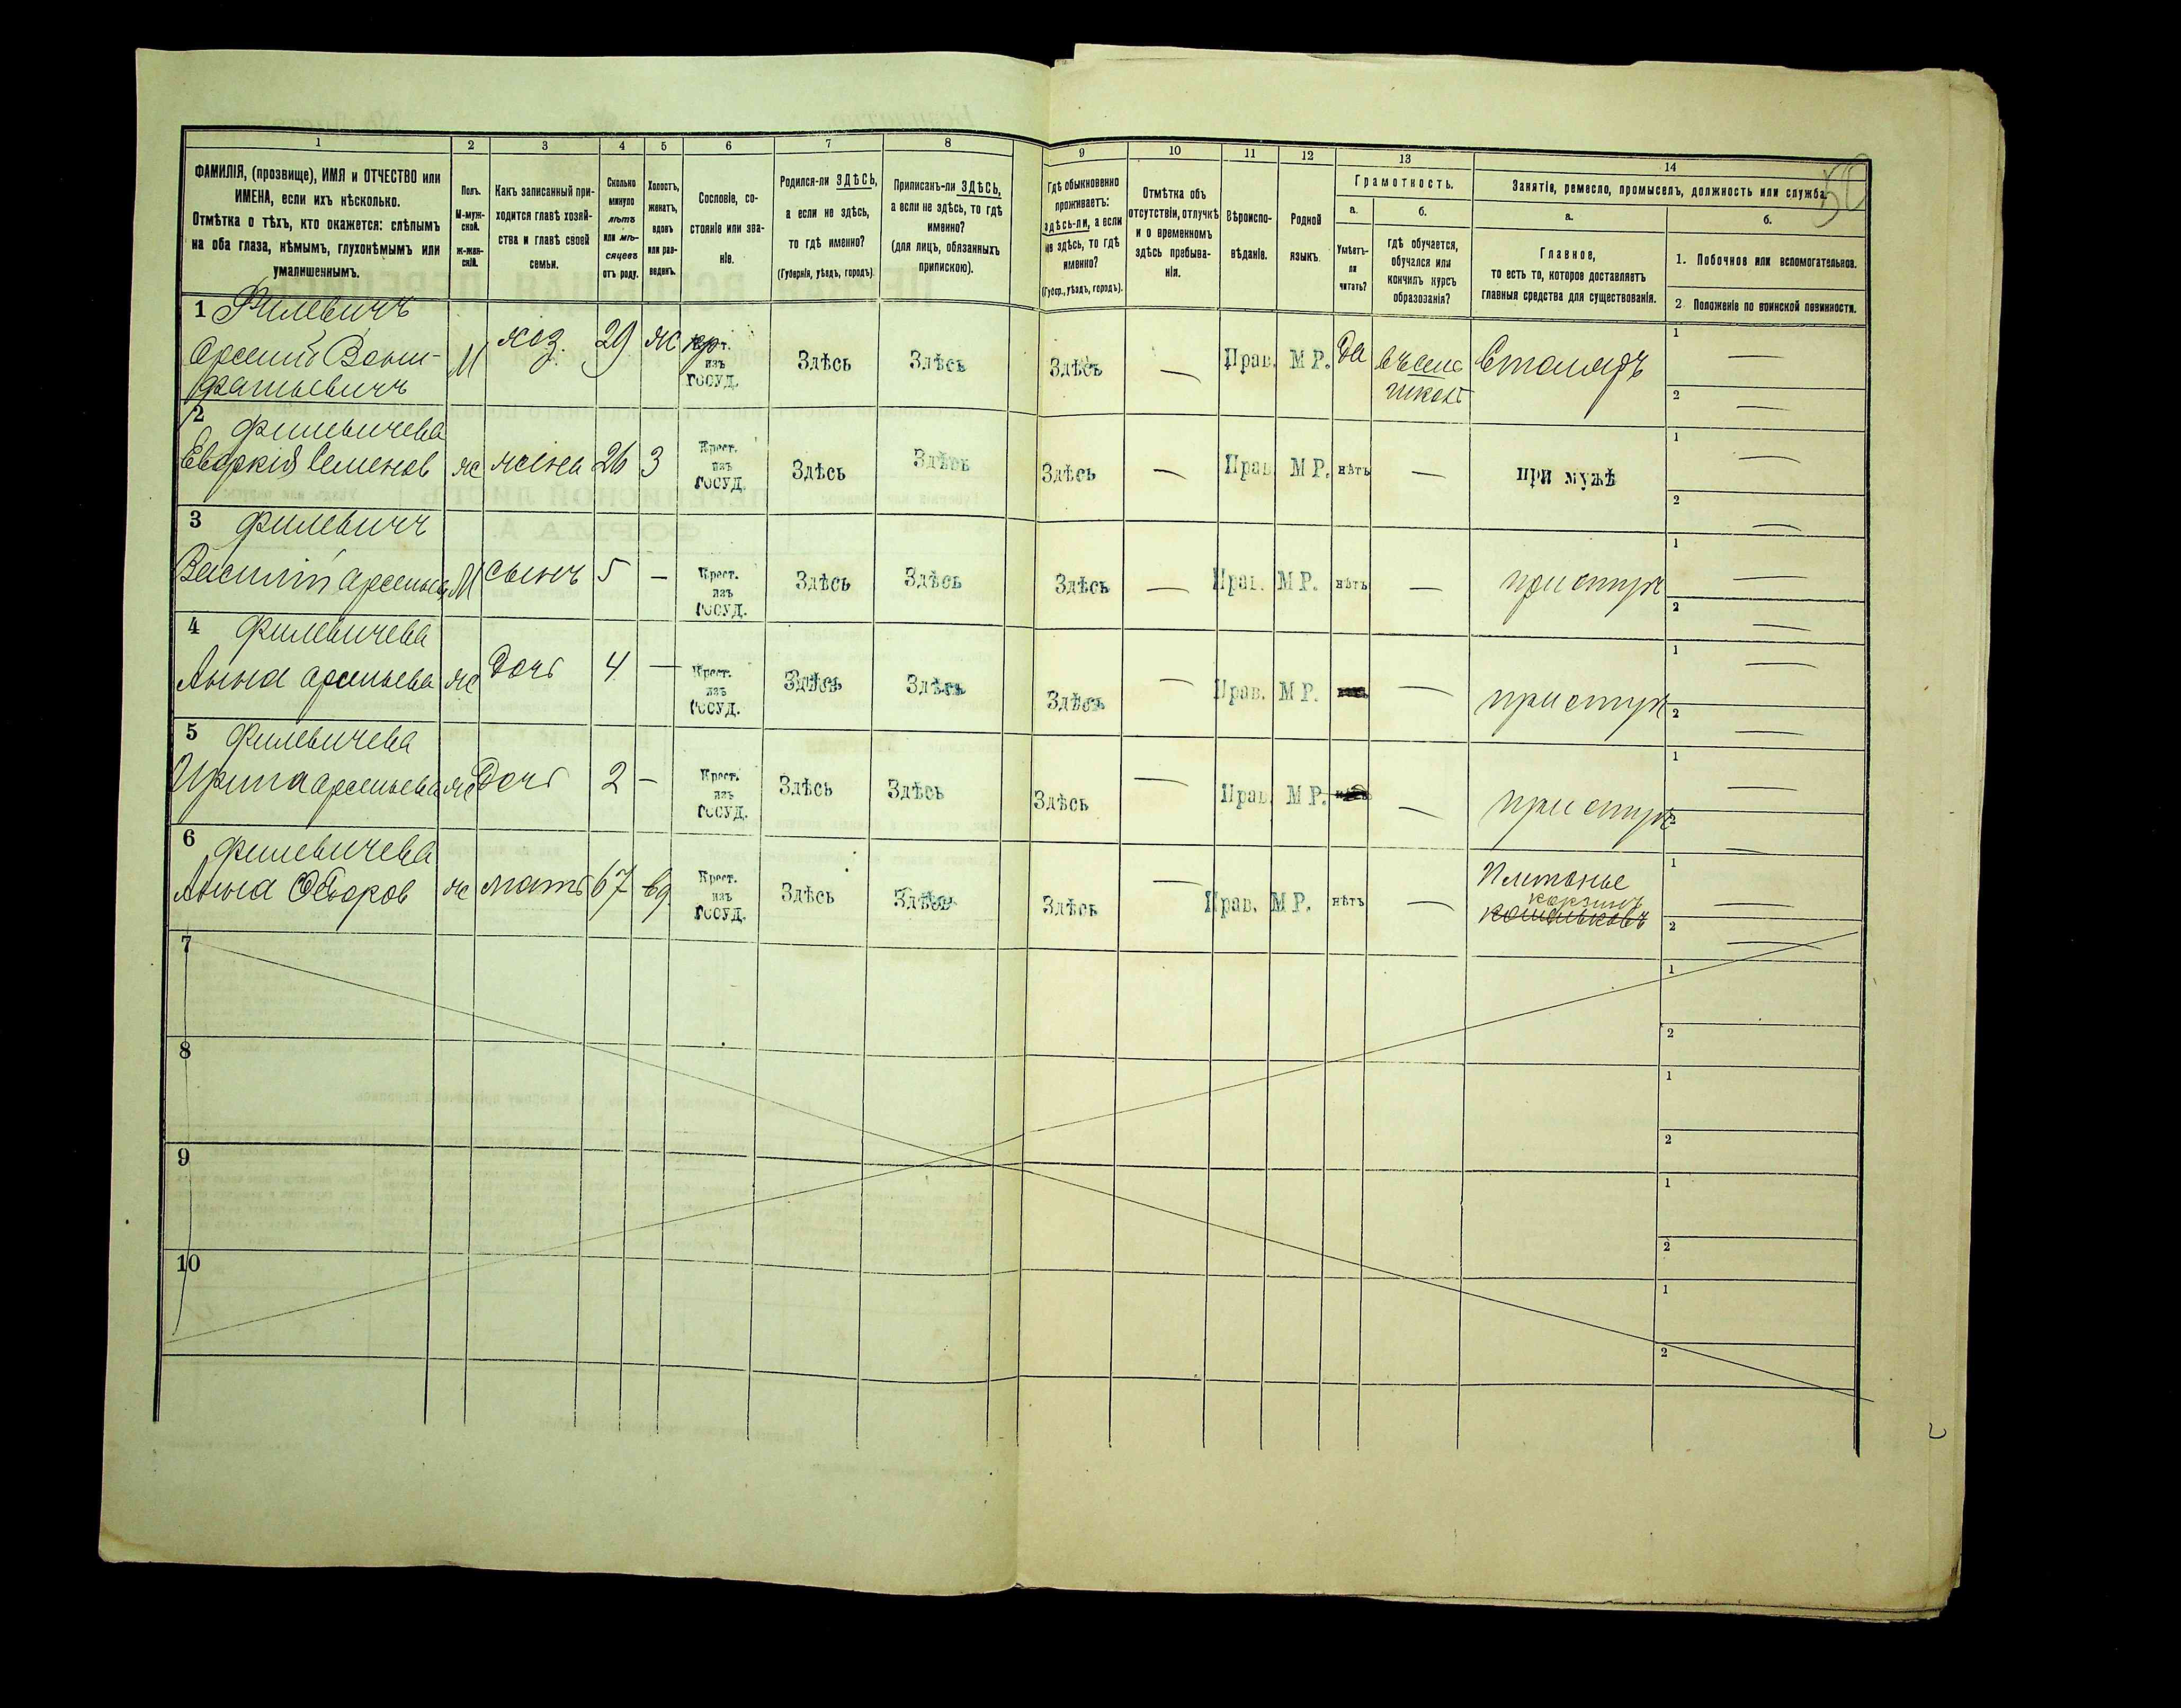 50
1
2
3
4
5
6
7
8
9
10
11
12
13
14
ФАМИЛІЯ, (прозвище), ИМЯ и ОТЧЕСТВО или
ИМЕНА, если ихъ нѣсколько.
Отмѣтка о тѣхъ, кто окажется: слѣпымъ
на оба глаза, нѣмымъ, глухонѣмымъ или
умалишеннымъ.
Полъ.
М-муж-
ской.
Ж-жен-
скій.
Какъ записанный при-
ходится главѣ хозяй-
ства и главѣ своей
семьи.
Сколько
минуло
лѣтъ
или мѣ-
сяцевъ
отъ роду.
Холостъ,
женатъ,
вдовъ
или раз-
веденъ.
Сословіе, со-
стояніе или зва-
ніе.
Родился-ли ЗДѢСЬ,
а если не здѣсь,
то гдѣ именно?
(Губернія, уѣздъ, городъ).
Приписанъ-ли ЗДѢСЬ,
а если не здѣсь, то гдѣ
именно?
(для лицъ, обязанныхъ
припискою).
Гдѣ обыкновенно
проживаетъ:
здѣсь-ли, а если
не здѣсь, то гдѣ
именно?
(Губер., уѣздъ, городъ).
Отмѣтка объ
отсутствіи, отлучкѣ
и о временномъ
здѣсь пребыва-
ніи.
Вѣроиспо-
вѣданіе.
Родной
языкъ.
Грамотность.
а.
Умѣетъ-
ли
читать?
б.
гдѣ обучается,
обучался или
кончилъ курсъ
образованія?
Занятіе, ремесло, промыселъ, должность или служба.
а.
Главное,
то есть то, которое доставляетъ
главныя средства для существованія.
б.
1. Побочное или вспомогательное.
2 Положеніе по воинской повинности.
1 Филевичъ
Арсеній Вони-
фатьевичъ
М хоз. 29 ж кр
изъ
госуд. Здѣсь Здѣсь Здѣсь — Прав. М Р. Да въ сель
школѣ Столяръ 1 — 2 —
2 Филевичева
Евдокія Семенов ж жена 26 З Крест.
изъ
госуд. Здѣсь Здѣсь Здѣсь — Прав. М Р. нѣтъ — при мужѣ 1 — 2 —
3 Филевичъ
Василій Арсеньев М сынъ 5 — Крест.
изъ
госуд. Здѣсь Здѣсь Здѣсь — Прав. М Р. нѣтъ — при отцѣ 1 — 2 —
4 Филевичева
Анна Арсеньева ж Дочь 4 — Крест.
изъ
госуд. Здѣсь Здѣсь Здѣсь — Прав. М Р. — при отцѣ 1 — 2 —
5 Филевичева
Ирина Арсеньева ж Дочь 2 — Крест.
изъ
госуд. Здѣсь Здѣсь Здѣсь — Прав. М Р. — при отцѣ 1 — 2 —
6 Филевичева
Анна Федоров ж мать 67 вд Крест.
изъ
госуд. Здѣсь Здѣсь Здѣсь — Прав. М Р. нѣтъ — Плетенье
корзинъ
1 — 2 —
7 1 2
8 1 2
9 1 2
10 1 2